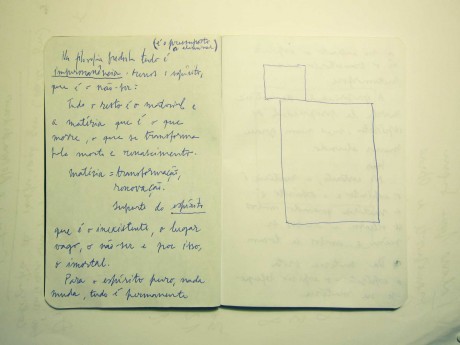 (é o pressuposto
Na filosofia tudo é
impermanência. Temos o espírito,
que é o não-ser:
Tudo o resto é o material e
a matéria que é o que
morre, o que se transforma
pela morte e renascimento.
matéria = transformação,
renovação.
suporte do espírito
que é o inexistente, o lugar
vago, o não-ser e por isso,
o imortal.
Para o espírito puro, nada
muda, tudo é permanente